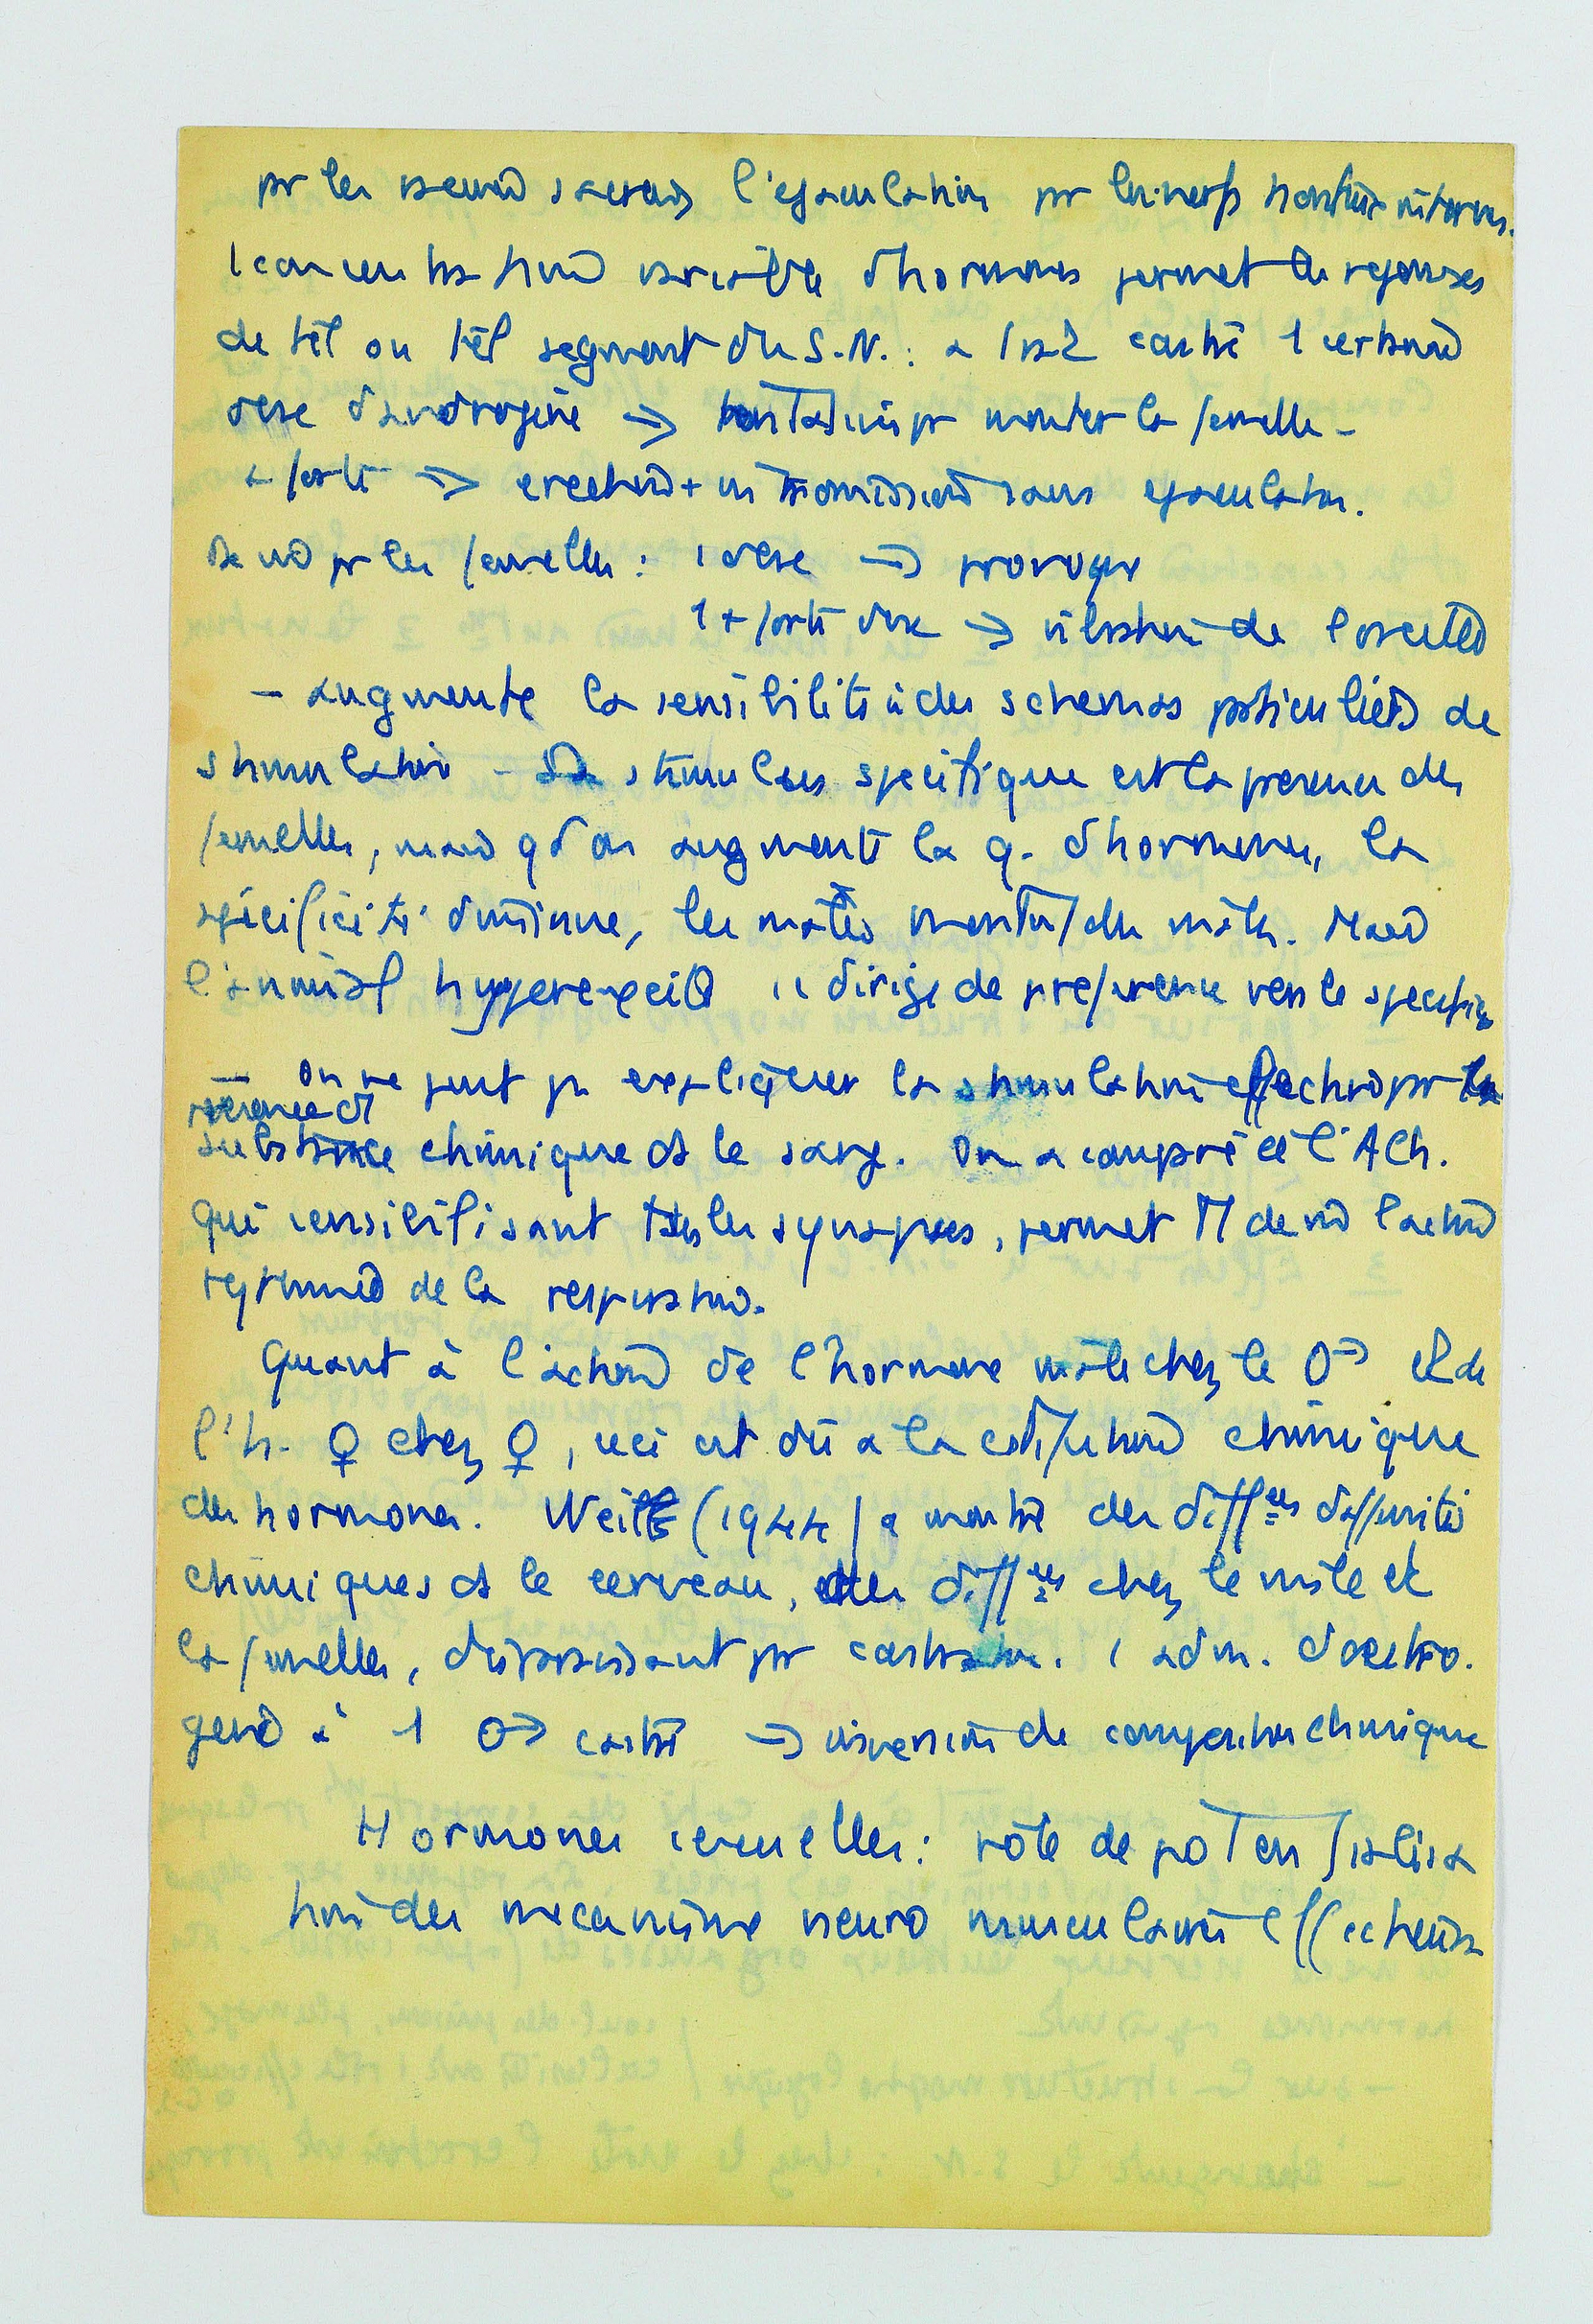 pr les nerveux sacrés, l'ejaculation pr les nerfs honteux internes.
1 concentration variable d'hormones permet les reponses
de tel ou tel segment du S.N. : a 1 rat castré 1 certaine
dose d'androgène → tentatives pr monter la femelle -
+ forte → erection + intromission sans ejaculation.
De m pr les femelles : 1 dose →
1 + forte dose → de l'oreille
- augmente la sensibilité à des schemas particuliers de
stimulation - Le stimulus specifique est la presence des
femelles, mais qd on augmente la q. d'hormones, la
spécificité diminue, les mâles montent des mâles. Mais
l'animal hyperexcité se dirige de preference vers le specifique
- On ne peut pas expliquer la stimulation effective pr la
presence ds
substance chimique ds le sang. On a comparé cela à l'ACh.
qui sensibilisant ttes les synapses, permet de m l'action
rythmée de la respiration.
Quant à l'action de l'hormone mâle chez le ♂ et de
l'h. ♀ chez ♀, ceci est dû a la constitution chimique
des hormones. Weil (1944) a montré des diffces
chimiques ds le cerveau, des diffces chez le mâle et
la femelle, disparaissant pr castration. 1 adm. d'oestro-
gene à 1 ♂ castré → inversion de composition chimique
Hormones sexuelles : rôle de potentialisa
tion des mecanisme neuro musculaire effecteurs